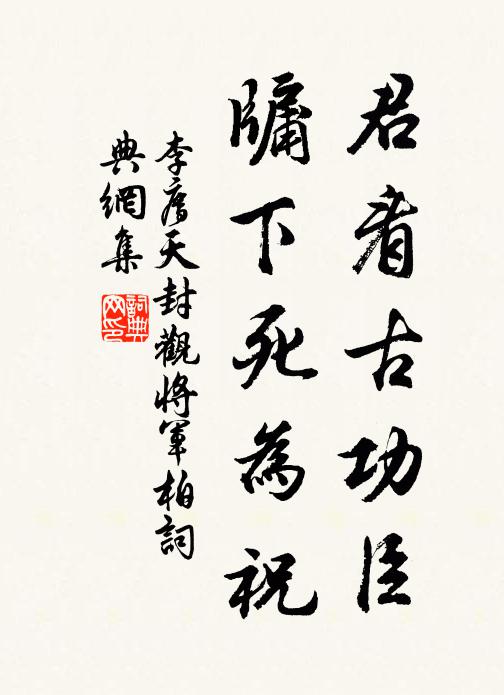 君看古功臣
牖下死為祝
李廌天封觀將軍柏詞
典網集
詞典网印